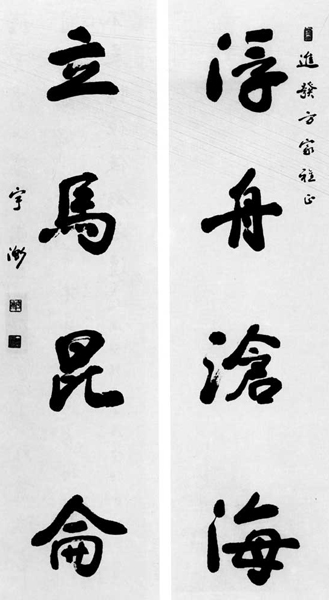 進發方家雅正
浮舟滄海
立馬昆侖
宇